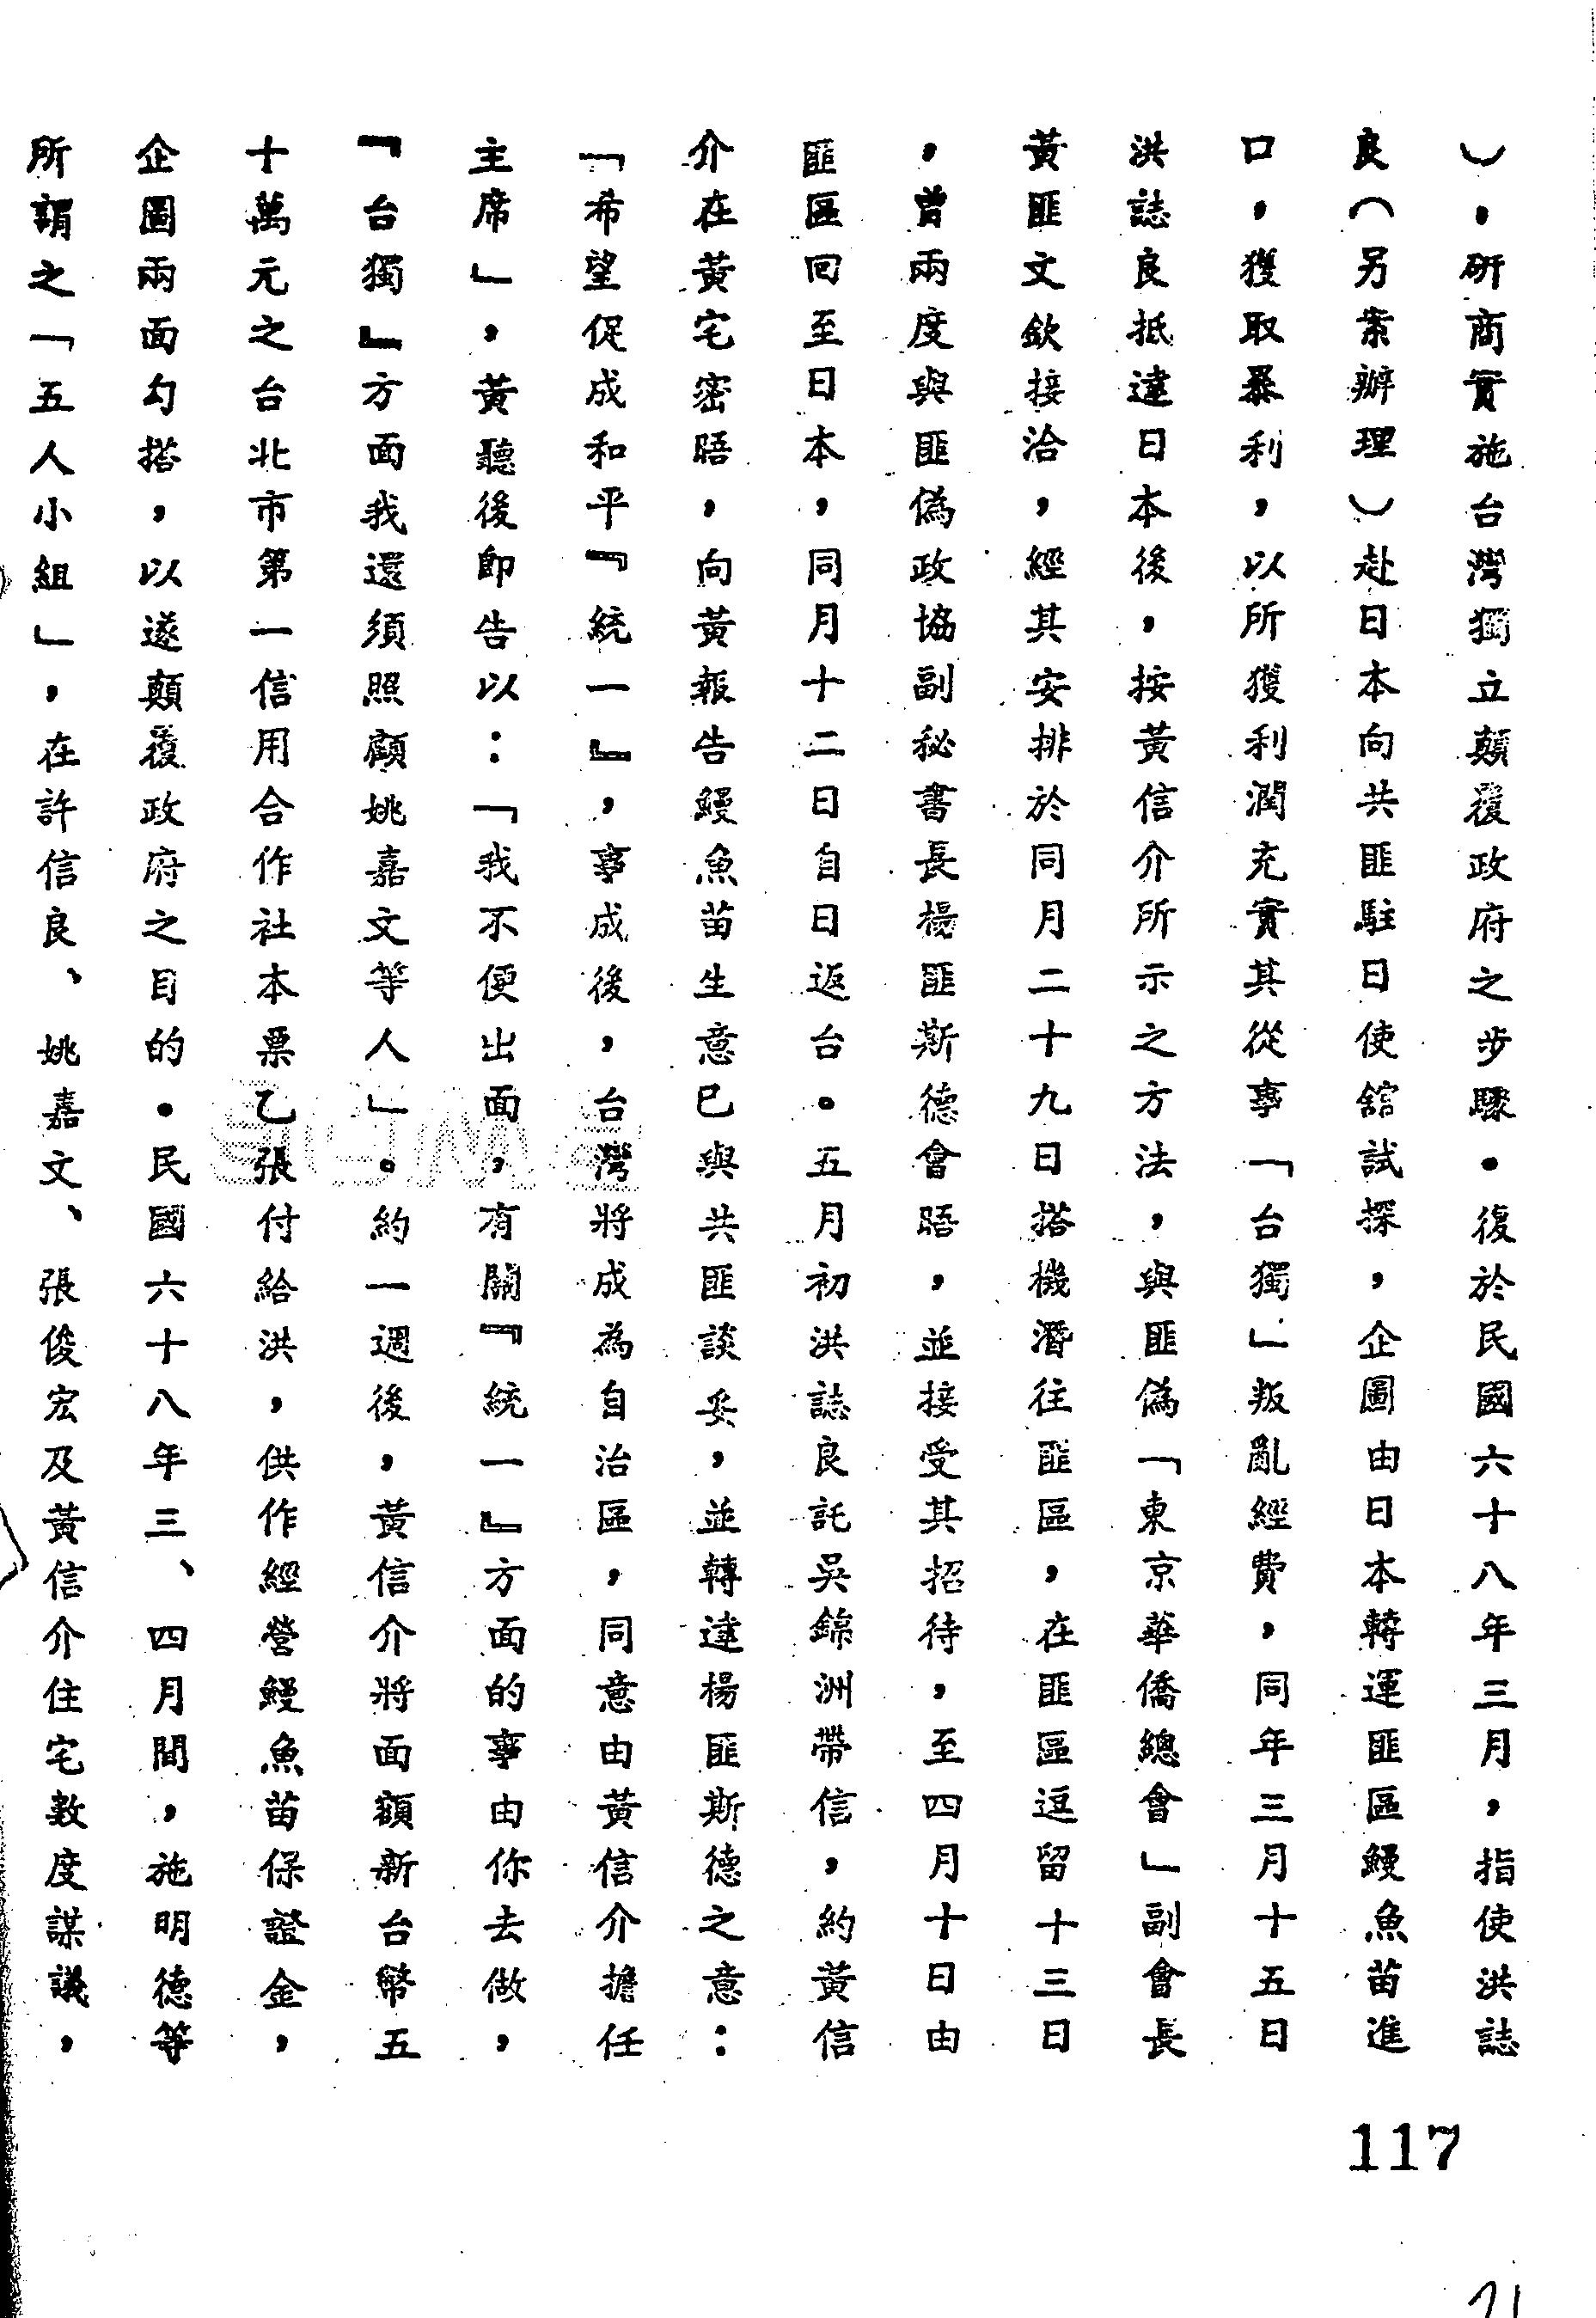 ），研商實施台灣獨立顛覆政府之步驟。復於民國六十八年三月，指使洪誌
良（另案辦理）赴日本向共匪駐日使舘試探，企圖由日本轉運匪區鰻魚苗進
口，獲取暴利，以所獲利潤充實其從事「台獨」叛亂經費，同年三月十五日
洪誌良抵達日本後，按黃信介所示之方法，與匪偽「東京華僑總會」副會長
黃匪文欽接洽，經其安排於同月二十九日搭機潛往匪區，在匪區逗留十三日
，曾兩度與匪偽政協副秘書長楊匪斯德會晤，並接受其招待，至四月十日由
匪區回至日本，同月十二日自日返台。五月初洪誌良託吳錦洲帶信，約黃信
介在黃宅密晤，向黃報告鰻魚苗生意已與共匪談妥，並轉達楊匪斯德之意：
「希望促成和平『統一』，事成後，台灣將成為自治區，同意由黃信介擔任
主席」，黃聽後即告以：「我不便出面，有關『統一』方面的事由你去做，
『台獨』方面我還須照顧姚嘉文等人」。約一週後，黃信介將面額新台幣五
十萬元之台北市第一信用合作社本票乙張付給洪，供作經營鰻魚苗保證金，
企圖兩面勾搭，以遂顛覆政府之目的。民國六十八年三、四月間，施明德等
所謂之「五人小組」，在許信良、姚嘉文、張俊宏及黃信介住宅數度謀議，
117
21